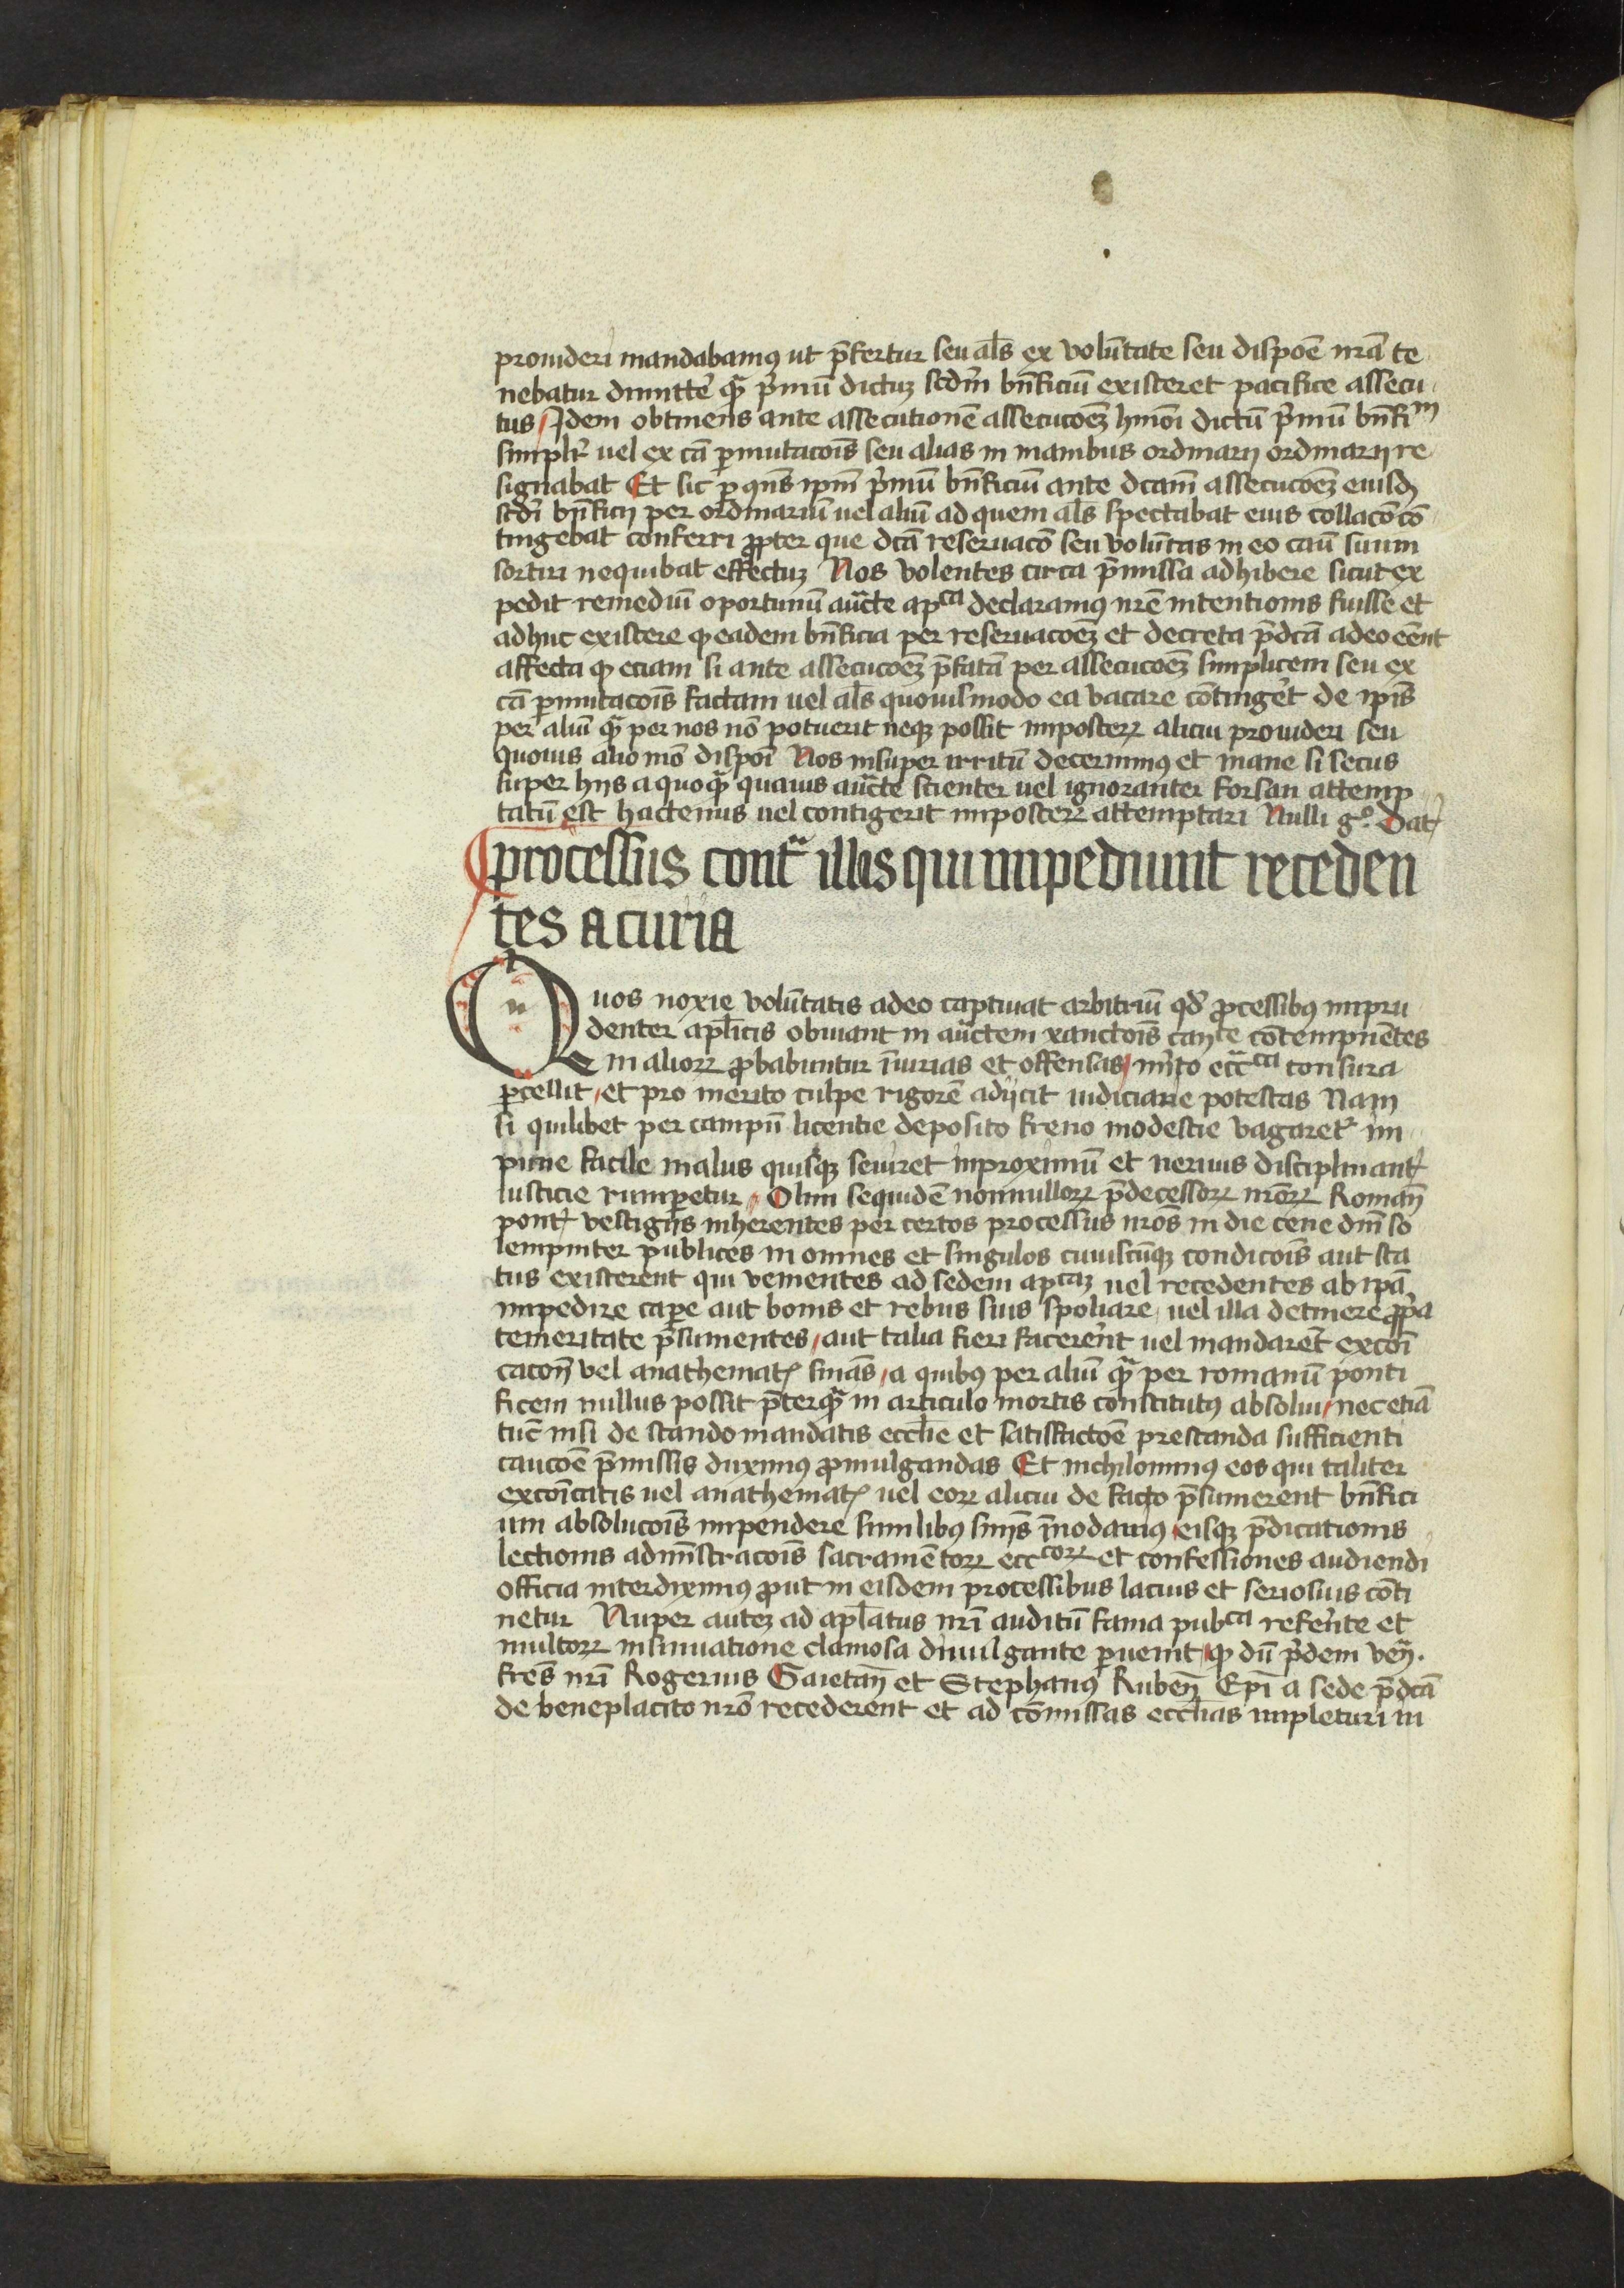 prouideri mandabamꝰ ut p̄fertur seu al̄s ex volūtate seu dispōe nr̄a te
nebatur dimitte᷑ qᷓ p͛mū dictuꝫ scd̄m bn̄ficiū existeret pacifice assecu
tus Idem obtinens ante assecutionē assecucōeꝫ hmōi dictū p͛mū bn̄fiᵐ
simplr̄ uel ex cā ꝑmutacōis seu alias in manibus ordinarij ordinarij re
signabat Et sic ꝑ qn̄s ip̄m p͛mū bn̄ficiū ante dc̄am assecucōeꝫ eiusdꝫ
scd̄i bn̄ficij per ordinariū uel aliū ad quem al̄s spectabat eius collacō cō
tingebat conferri ꝓpter que dc̄a reseruacō seu volūtas in eo cāu suum
sortiri nequibat effectuꝫ Nos volentes circa p̄missa adhibere sicut ex
pedit remediū oportunū auc̄te apᶜᵃ declaramꝰ nr̄e intentionis fuisse et
adhuc existere ꝙ eadem bn̄ficia per reseruacōeꝫ et decreta p̄dc̄a adeo eēnt
affecta ꝙ eciam si ante assecucōeꝫ p̄fatā per assecucōeꝫ simplicem seu ex
cā ꝑmutacōis factam uel al̄s quouismodo ea vacare cōtinge᷑t de ip̄is
per aliū qᷓ per nos nō potuerit neqꝫ possit imposterꝝ alicui prouideri seu
quouis alio mō dispōi Nos insuper irritū decernimꝰ et inane si secus
super hijs a quoqᷓ quauis auc̄te scienter uel ignoranter forsan attemp
tatū est hactenus uel contigerit imposterꝝ attemptari Nulli gᵒ. Dat̄
processus contᷓ illos qui impediunt receden
tes a curia
Quos noxie volūtatis adeo captiuat arbitriū qd̄ ꝓcessibꝰ impru
denter apl̄icis obuiant in auc̄tem xanctōis canᶜᵉ cōtempnētes
in aliorꝝ ꝓbabuntur īiurias et offensas m͛ito ecc̄ᶜᵃ consura
ꝑcellit et pro merito culpe rigorē adijcit iudiciarie potestas Nam
si quilibet per campū licentie deposito freno modestie vagaret᷑ im
pune facile malus quisqꝫ seuiret in proximū et neruus disciplinant᷑
iusticie rumpetur Olim sequidē nonnullorꝝ p̄decessorꝝ nr̄orꝝ Roman̄
pont᷑ vestigijs inherentes per certos processus nr̄os in die cene dn̄i so
lempniter publices in omnes et singulos cuiuscūqꝫ condicōis aut sta
tus existerent qui venientes ad sedem apᶜᵃꝫ uel recedentes ab ip̄a
impedire cape᷑ aut bonis et rebus suis spoliare uel illa detinere ꝓp͛a
temeritate p̄sumentes aut talia fieri facere᷑nt uel mandarēt excōi
cacōn̄ vel anathemat᷑ sn̄ias a quibꝰ per aliū qᷓ per romanū ponti
ficem nullus possit p̄terqᷓ in articulo mortis constitutꝰ absolui nec etiā
tuc̄ nisi de stando mandatis eccl̄ie et satisfactōe prestanda sufficienti
caucōe p̄missis duximꝰ ꝓmulgandas Et nichilominꝰ eos qui taliter
excōicatis uel anathemat᷑ uel eorꝝ alicui de facto p̄sumerent bn̄fici
um absolucōis impendere similibꝰ sn̄ijs īnodauimꝰ eisqꝫ p̄dicationis
lectionis admīstracōis sacramētorꝝ eccᶜᵒʳꝝ et confessiones audiendi
officia interdiximꝰ ꝓut in eisdem processibus lacius et seriosius cōti
netur Nuper auteꝫ ad apl̄atus nr̄i auditū fama pubᶜᵃ refe᷑nte et
multorꝝ insinuatione clamosa diuulgante ꝑuenit ꝙ dū p͛dem ven̄.
fr̄es nr̄i Rogerius Gaietan̄ et Stephanꝰ Ruben̄ Ep̄i a sede p̄dc̄a
de beneplacito nr̄o recederent et ad cōmissas eccl̄ias impleturi in